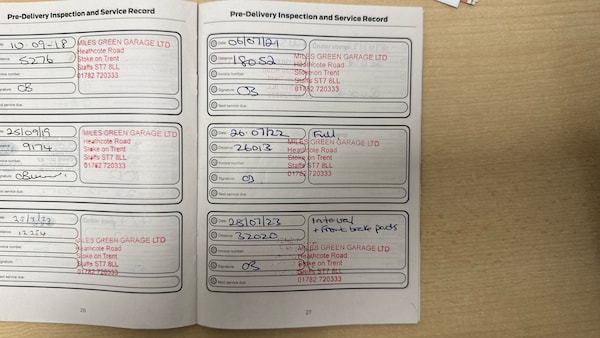 Pre-Delivery Inspection and Service Record
10-09-18
5276
MILES GREEN GARAGE LTD
Heathcote Road
Stoke on Trent
Staffs ST7 8LL
01782 720333
Next service due
25/09/19
9174
MILES GREEN GARAGE LTD
Heathcote Road
Stoke on Trent
Staffs ST7 8LL
01782 720333
Next service due
MILES GREEN GARAGE LTD
Heathcote Road
Stoke on Trent
Staffs ST7 8LL
01782 720333
Next service due
26
Pre-Delivery Inspection and Service Record
Date 06/07/21
Distance 18052
Invoice number
Signature
MILES GREEN GARAGE LTD
Heathcote Road
Stoke on Trent
Staffs ST7 8LL
01782 720333
Next service due
Date 26.07/22 Full
Distance 26013
Invoice number
Signature
MILES GREEN GARAGE LTD
Heathcote Road
Stoke on Trent
Staffs ST7 8LL
01782 720333
Next service due
Date 28/07/23 Interval
+ Front brake pads
Distance 32020
Invoice number
Signature
MILES GREEN GARAGE LTD
Heathcote Road
Stoke on Trent
Staffs ST7 8LL
01782 720333
Next service due
27